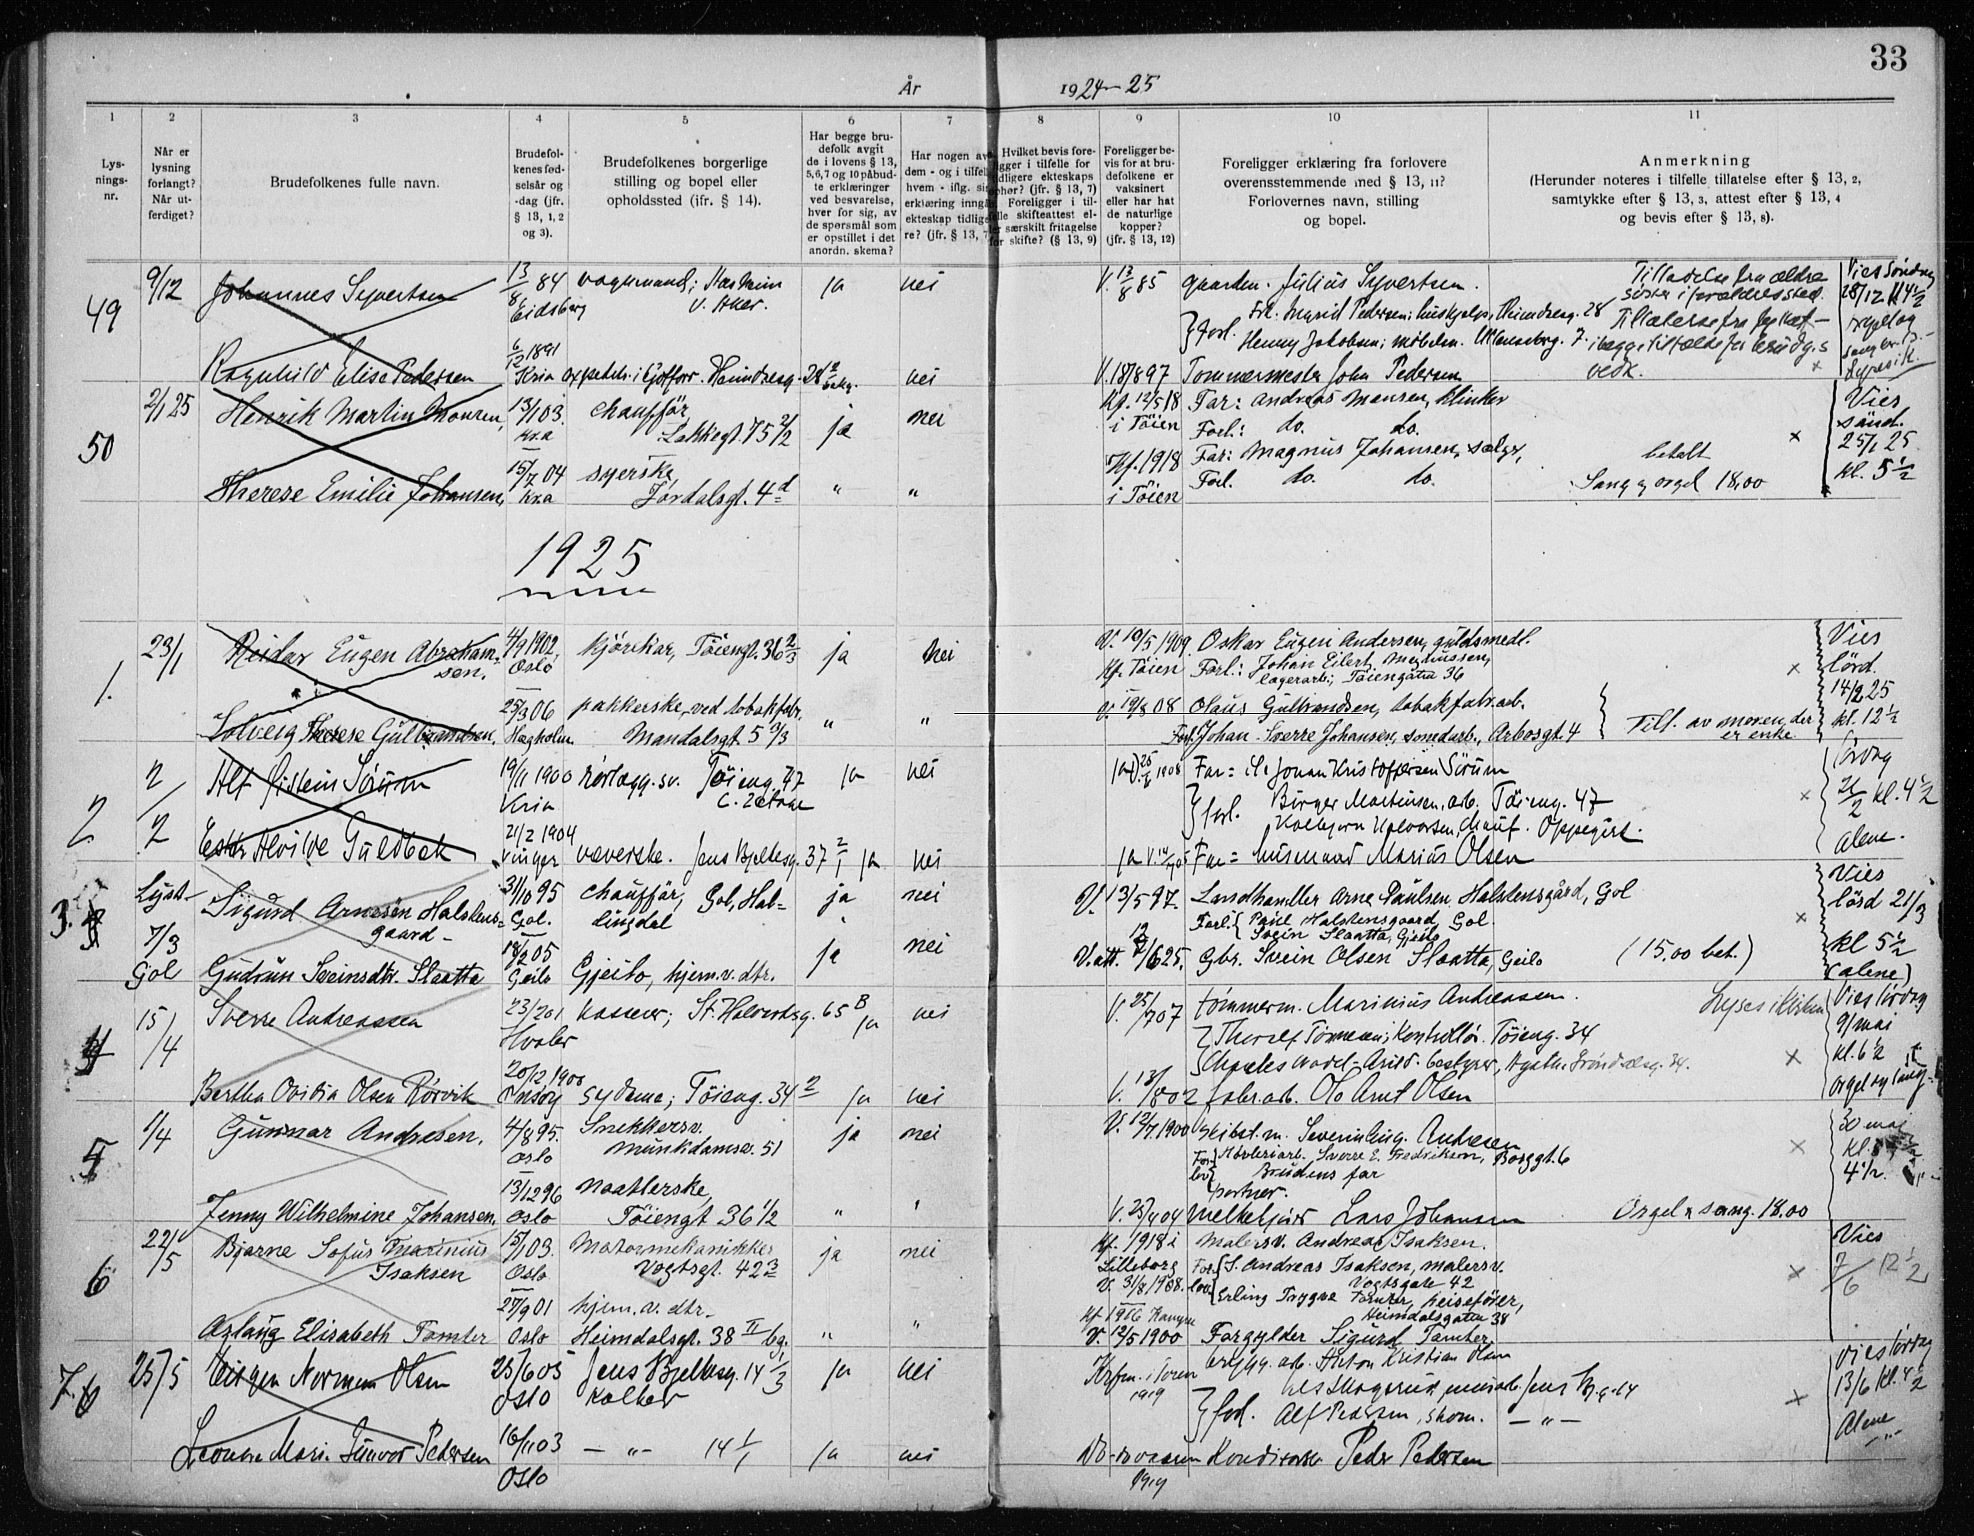 33
År 1924-25
1 2 3 4 5 6 7 8 9 10 11
Lys-
nings-
nr.
Når er
lysning
forlangt?
Når ut-
ferdiget?
Brudefolkenes fulle navn.
Brudefol-
kenes fød-
selsår og
-dag (jfr.
§ 13, 1, 2
og 3).
Brudefolkenes borgerlige
stilling og bopel eller
opholdssted (jfr. § 14).
Har begge bru-
defolk avgit
de i lovens § 13,
5,6,7 og 10 påbud-
te erklæringer
ved besvarelse,
hver for sig, av
de spørsmål som
er opstillet i det
anordn. skema?
Har nogen av
dem - og i tilfel
hvem - iflg. si
erklæring inngå
ekteskap tidlige
re? (jfr. § 13, 7
Hvilket bevis fore-
ligger i tilfelle for
tidligere ekteskaps
ophør? (jfr. § 13, 7)
Foreligger i til-
felle skifteattest el-
er særskilt fritagelse
for skifte? (§ 13, 9)
Foreligger be-
vis for at bru-
defolkene er
vaksinert
eller har hat
de naturlige
kopper?
(jfr. § 13, 12)
Foreligger erklæring fra forlovere
overensstemmende med § 13, 11?
Forlovernes navn, stilling
og bopel.
Anmerkning
(Herunder noteres i tilfelle tillatelse efter § 13, 2,
samtykke efter § 13, 3, attest efter § 13, 4
og bevis efter § 13, 8).
49 9/12 Johannes Syvertsen 13/8 84 Eidsberg ja nei V. 13/8 85 Julius Syvertsen.
Forl. Henny Jakobsen;
Ragnhild Elise Pedersen 6/12 1891 Kria nei V. 18/8 97 Tømmermester John Pedersen
50 2/1 25 Henrik Martin Monsen, 13/1 03. Kr.a chaufför Lakkegt. 75 2/2 ja nei Kf. 12/5 18 i Töien Far: Andreas Monsen, klinker
Forl.: do. do.
Vies sönd. 25/1 25. kl. 5 1/2
Therese Emilie Johansen, 15/7 04 Kr.a syerske Jordalsgt. 4 d " " Kf. 1918 i Töien Far: Magnus Johansen, sælger,
Forl. do. do.
betalt
Sang og orgel 18,00
1925
1. 23/1 Reidar Eugen Abraham-
sen. 4/9 1902, Oslo kjörekar, Töiengt. 36 2/3 ja nei V. 19/5 1909 Kf. Töien Oskar Eugen Andersen, guldsmedl.
Forl.: Johan Eilert Magnussen,
lagerarb.; Töiengata 36
Vies lörd. 14/2 25 kl. 12 1/2
Solveig Therese Gulbrandsen, 25/3 06 pakkerske ved tobakfabr. Mandalsgt. 5 " " V. 19/8 08 Olaus Gulbrandsen, tobakfabr.arb.
Forl. Johan Sverre Johansen, smedarb., Arbosgt. 4
Till. av moren, der
er enke
2. 2/2 Alf Øistein Sørum 19/11 1900 Kria rørlegg.sv. Tøieng. 47 ja nei Far = Johan Kristoffersen Sørum
forl. Birger Martinsen, arb. Tøieng. 47
Oppegård.
Lørdag 21/2 kl. 4 1/2 alene.
Ester Alvilde Guldbek 21/2 1904 Vinger væverske. Jens Bjelkesg. 37 2/1 ja nei Far = husmand Marius Olsen
3. Lyst 7/3 Gol Sigurd Arnesen Halstens-
gaard 31/10 95 Gol. chauffør, Gol, Hal-
lingdal ja nei V. 13/5 97. Landhandler Arne Paulsen Halstensgård, Gol
Forl. Paul Halstensgaard, Gol.
Svein Slaatta, Gjeilo
Vies lörd 21/3 kl 5 1/2 (alene)
Gudrun Sveinsdtr. Slaatta 18/2 05 Geilo Gjeilo, hjem.v. dtr. ja nei Gbr. Svein Olsen Slaatta, Geilo (15.00 bet.)
4 15/4 Sverre Andreassen 23/2 01 Hvaler kasserer; St. Halvardsg. 65 B ja nei V. 25/7 07 tømmerm. Marinius Andreassen.
Kontrollør. Tøieng. 34
Lyses i kirken
Vies lørdag 9/mai kl. 6 1/2 orgel og sang
Bertha Ovidia Olsen Rörvik 20/12 1900 sydame; Tøieng. 34 2 ja nei fabr.arb. Ole Arnt Olsen
5 1/4 Gunnar Andresen. 4/8 95. Oslo Snekkersv. Munkdamsv. 51 ja nei V. 12/7 1900 Skibst.m. Severin Aug. Andresen
Sverre E. Fredriksen, Borggt. 6
Brudens far
30 mai kl 4 1/2.
Jenny Wilhelmine Johansen. 13/12 96 Oslo Naatlerske, Töiengt 36 1/2 " " V. 25/4 04 Melkekjörer Lars Johansen Orgel & sang. 18.00
6 22/5 Bjarne Sofus Marinius
Isaksen 15/1 03. Oslo Motormekanikker Vogtsgt. 42 3 ja nei Kf. 1918 i Lilleborg V. 31/8 1908. Malersv. Andreas Isaksen.
S. Andreas Isaksen, malersv.
Vogtsgate 42
Erling Trygve Tamter, heisefører,
Heimdalsgata 38
Vies 7/6 12 1/2
Aslaug Elisabeth Tamter 27/9 01 Oslo hjem.v. dtr. Heimdalsgt. 38 II bg. " " V. 12/5 1900 Forgylder Sigurd Tamter.
7. 25/5 Birger Norman Olsen 25/6 05 Oslo Jens Bjelkesg. 14 1/3 ja nei 1919 brygg. arb. Anton Kristian Olsen
forl. Alf Pedersen, skom. — " —
Vies lørdag 13/6 kl. 4 1/2 Alene
Leonore Marie Gunvor Pedersen 16/11 03 Oslo — " — 14 1/1 ja nei 1919 Konditor Peder Pedersen